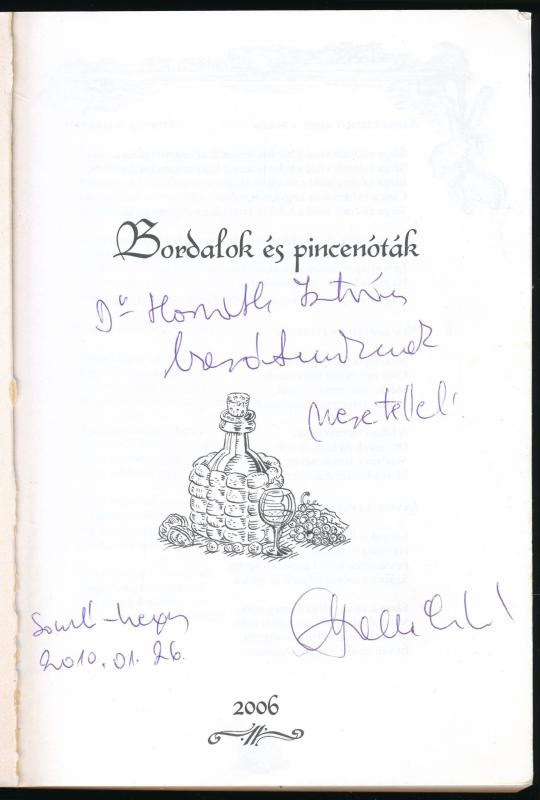 Bordalok és pincenóták
Dr Horváth István
barátunknak
szeretettel!
Somló-hegy
2010.01.26.
2006